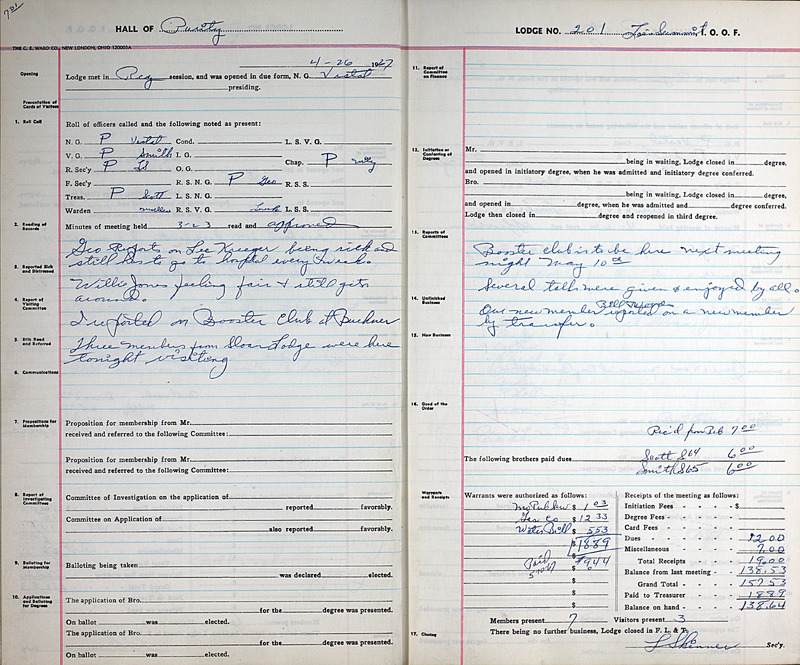 721
HALL OF Purity
THE C. E. WARD CO., NEW LONDON, OHIO 120000A
4-26 1967
Opening
Lodge met in Reg session, and was opened in due form, N. G. Violet
presiding.
Presentation of Cards of Visitors
1. Roll Call
Roll of officers called and the following noted as present:
N. G. P Violet Cond. L. S. V. G.
V. G. P Smith I. G.
Chap. P
R. Sec'y P O. G.
F. Sec'y R. S. N. G. P Geo R. S. S.
Treas. P Scott L. S. N. G.
Warden R. S. V. G. L. S. S.
2. Reading of Records
Minutes of meeting held 3-23 read and approved
3. Reported Sick and Distressed
Geo Reports on Les Krueger being sick and
still has to go to hospital every week.
Willie Jones feeling fair & still gets
around.
4. Report of Visiting Committee
I reported on Booster Club at Buckner
5. Bills Read and Referred
Three members from Sloan Lodge were here
tonight visiting
6. Communications
7. Propositions for Membership
Proposition for membership from Mr.
received and referred to the following Committee:
Proposition for membership from Mr.
received and referred to the following Committee:
8. Report of Investigating Committees
Committee of Investigation on the application of
reported favorably.
Committee on Application of
also reported favorably.
9. Balloting for Membership
Balloting being taken
was declared elected.
10. Applications and Balloting for Degrees
The application of Bro.
for the degree was presented.
On ballot was elected.
The application of Bro.
for the degree was presented.
On ballot was elected.
LODGE NO. 201 Lee's Summit I. O. O. F.
11. Report of Committee on Finance
12. Initiation or Conferring of Degrees
Mr.
being in waiting, Lodge closed in degree,
and opened in initiatory degree, when he was admitted and initiatory degree conferred.
Bro.
being in waiting, Lodge closed in degree,
and opened in degree, when he was admitted and degree conferred.
Lodge then closed in degree and reopened in third degree.
13. Reports of Committees
Booster club is to be here next meeting
night May 10th
Several talks were given & enjoyed by all.
14. Unfinished Business
Our new member Bill reported on a new member
by transfer.
15. New Business
16. Good of the Order
Rec'd from Bob 7.00
The following brothers paid dues
Scott 864 6.00
Smith 865 6.00
Warrants and Receipts
Warrants were authorized as follows:
Mo Pub Ser $ 1.03
Gas Co $ 12.33
Water Bill $ 5.53
$ 18.89
Paid $ 9.44
$
$
$
$
Receipts of the meeting as follows:
Initiation Fees $
Degree Fees
Card Fees
Dues 12.00
Miscellaneous 7.00
Total Receipts 19.00
Balance from last meeting 138.53
Grand Total 157.53
Paid to Treasurer 18.89
Balance on hand 138.64
Members present 7 Visitors present 3
17. Closing
There being no further business, Lodge closed in F. L. & T.
L Skinner Sec'y.